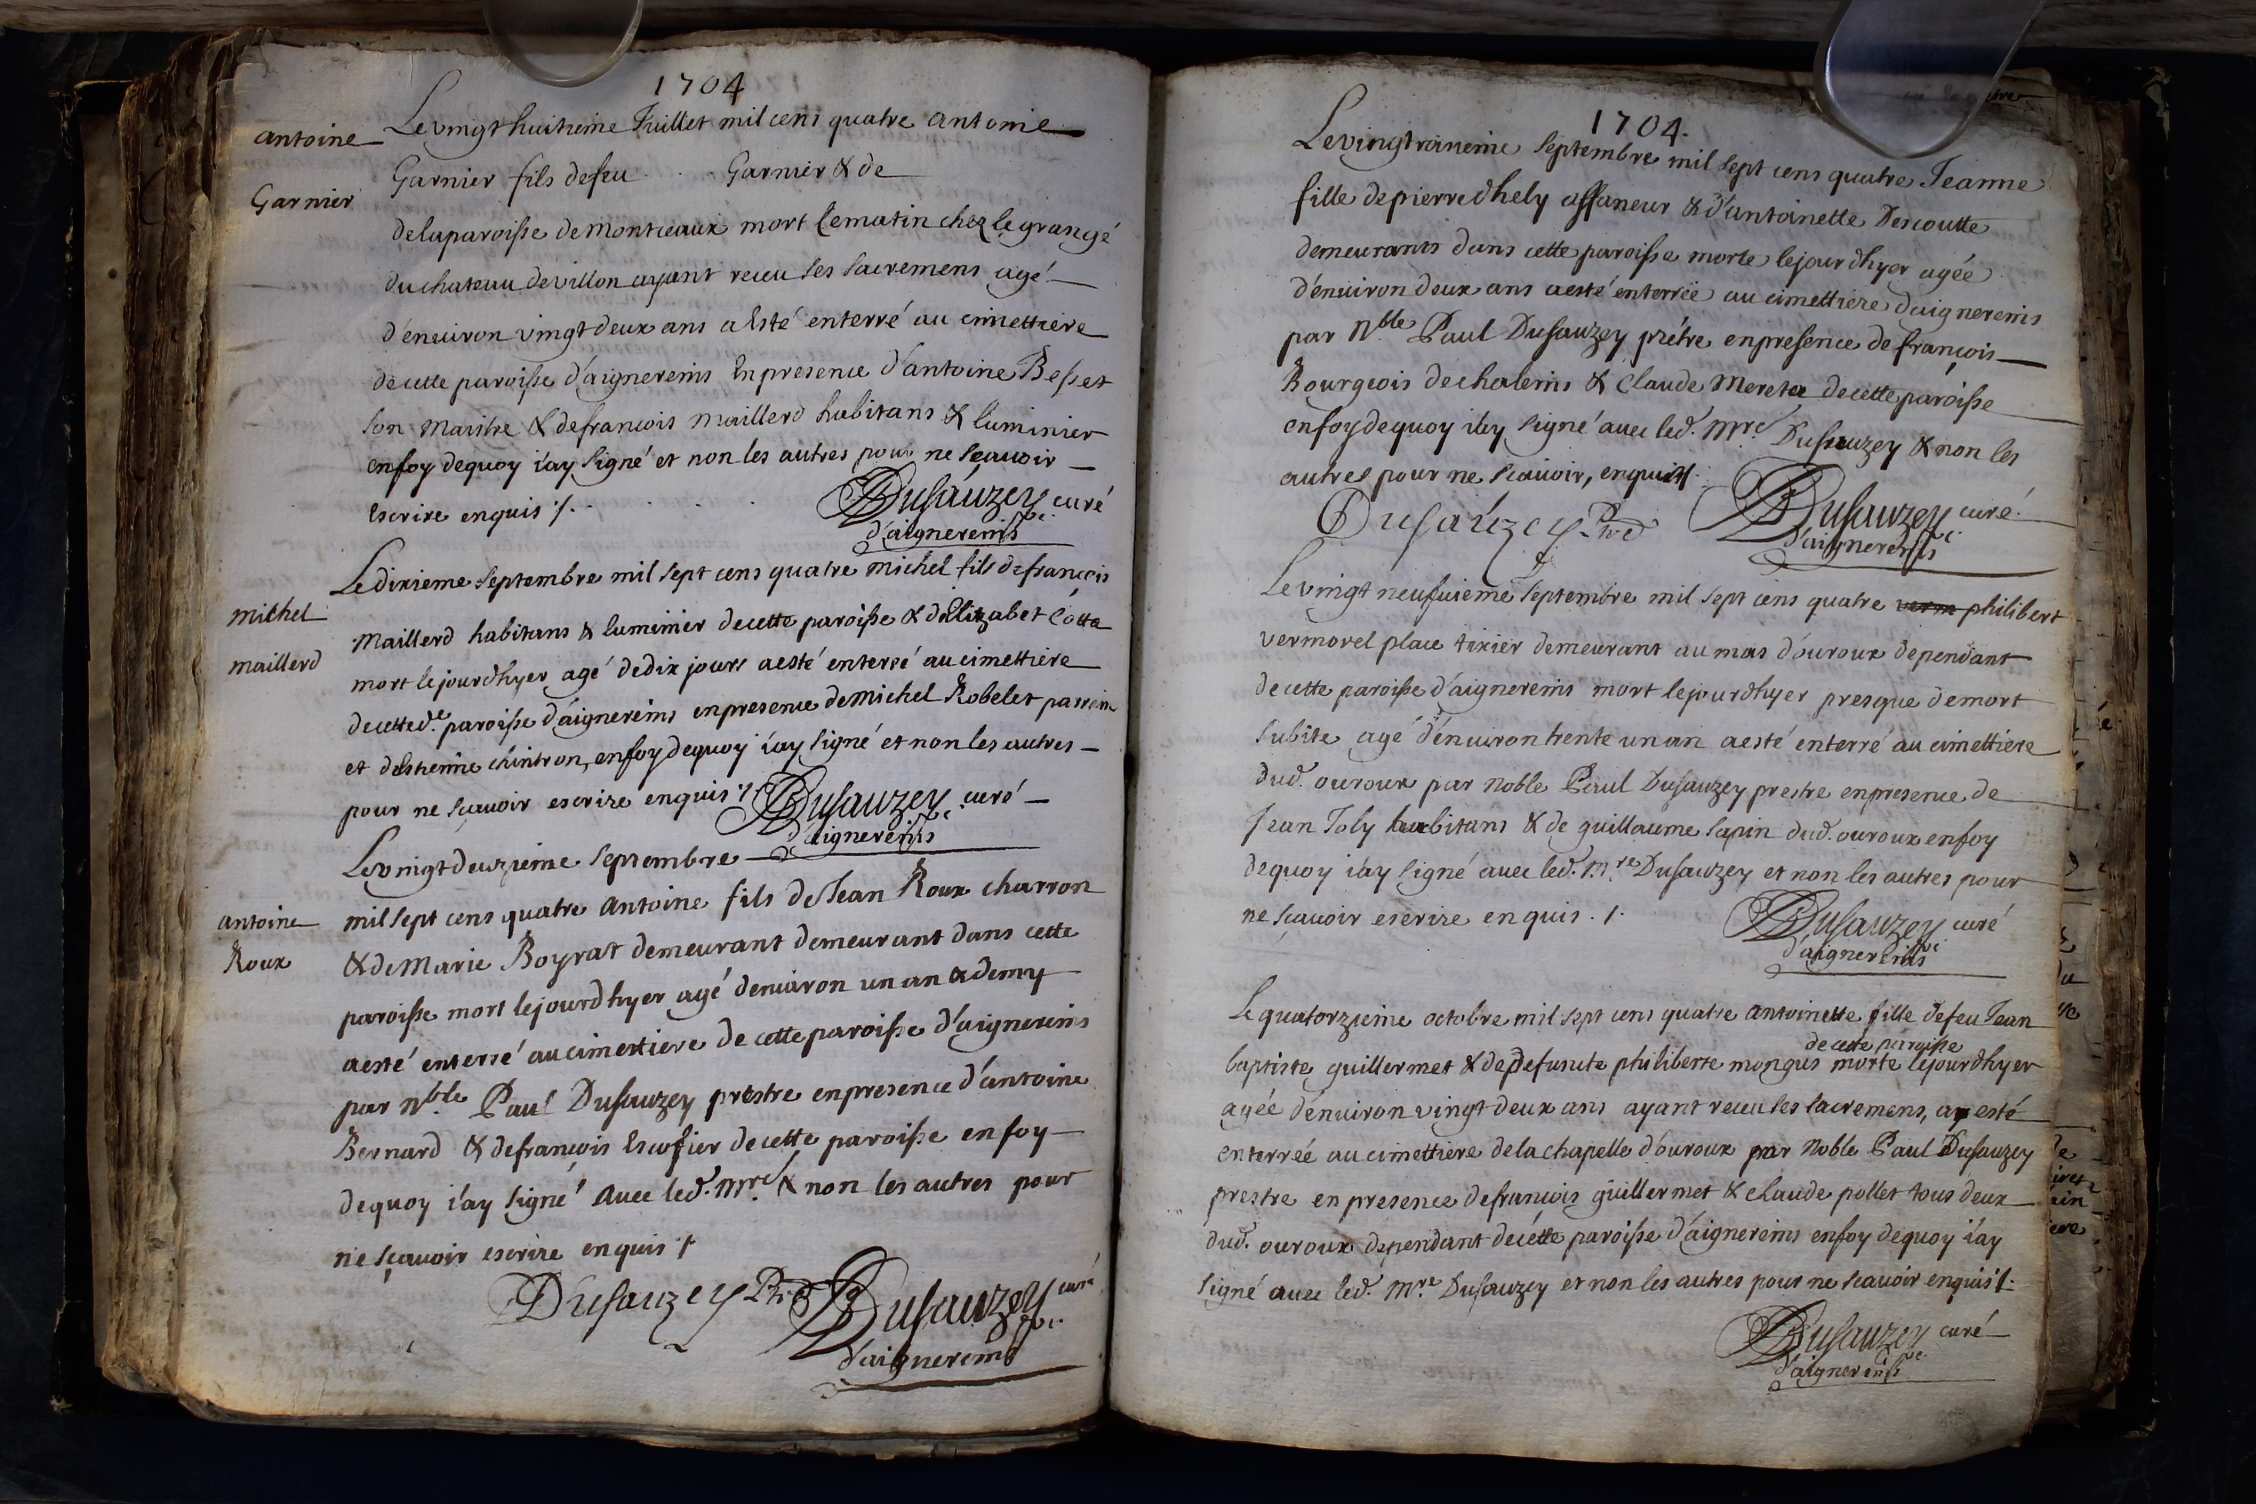 1704
Antoine
Garnier
Le vingt huitieme Juillet mil cens quatre antoine
Garnier fils defeu . . Garnier & de
delaparoisse de montceaux mort Lematin chez le grangé
du chateau de villon ayant receu ses sacremens agé
d'enuiron vingt deux ans a Esté enterré au cimettiere
de cette paroisse d'aignereins En presence d'antoine Besset
son maistre & defrancois maillerd habitans & luminier
enfoy dequoy i'ay signé et non les autres pour ne scauoir
Escrire enquis /.
Dusauzey curé
d'aignereins
michel
maillerd
Ledixieme septembre mil sept cens quatre michel fils defrancois
Maillerd habitans & luminier decette paroisse & d'Elizabet Cotta
mort lejourdhyer agé dedix jours aesté enterré aucimettiere
decetted.e paroisse d'aignereins enpresence demichel Robelet parrein
et d'estienne chintron, enfoy dequoy i'ay signé et non les autres
pour ne sçauoir escrire enquis /.
Dusauzey curé
d'aignereins
antoine
Roux
Levingtdeuzieme septembre
mil sept cens quatre antoine fils de Jean Roux charron
& de Marie Boyrat demeurant demeurant dans cette
paroisse mort lejourdhyer agé denuiron un an & demy
aesté enterré aucimettiere de cette paroisse d'aignereins
par N.ble Paul Dusauzey prestre enpresence d'antoine
Bernard & defrancois Escofier decette paroisse enfoy
dequoy i'ay signé auec led. Mre & non les autres pour
ne sçauoir escrire enquis /
Dusauzey Ptre
Dusauzey curé
d'aignereins
1704.
Levingtroisieme septembre mil sept cens quatre Jeanne
fille depierre dhely affaneur & d'antoinette Descoutte
demeurants dans cette paroisse morte lejourdhyer agée
d'enuiron deux ans aesté enterrée au cimettiere d'aignereins
par N.ble Paul Dusauzey prêtre enpresence de françois
Bourgeois dechaleins & Claude Meretee decette paroisse
enfoy dequoy i'ay signé auec led. Mre Dusauzey & non les
autres pour ne scauoir, enquis /.
Dusauzey Ptre
Dusauzey curé
d'aignereins
Le vingt neufuieme septembre mil sept cens quatre verm philibert
vermorel place tixier demeurant au mas d'ouroux dependant
de cette paroisse d'aignereins mort lejourdhyer presque demort
subite agé d'enuiron trente un an aesté enterré au cimettiere
dud. ouroux par noble Paul Dusauzey prestre enpresence de
Jean Joly habitans & de guillaume sapin dud. ouroux enfoy
dequoy i'ay signé auec led. M.re Dusauzey et non les autres pour
ne sçauoir escrire enquis . /.
Dusauzey curé
d'aignereins
Le quatorzieme octobre mil sept cens quatre antoinette fille defeu Jean
de cette paroisse
baptiste guillermet & de defuncte philiberte mongus morte lejourdhyer
agée d'enuiron vingt deux ans ayant receu les sacremens, a esté
enterrée au cimettiere dela chapelle d'ouroux par Noble Paul Dusauzey
prestre en presence defrancois guillermet & claude pollet tous deux
dud. ouroux dependant de cette paroisse d'aignereins enfoy dequoy i'ay
signé auec led. M.re Dusauzey et non les autres pour ne scauoir enquis /.
Dusauzey curé
d'aignereins